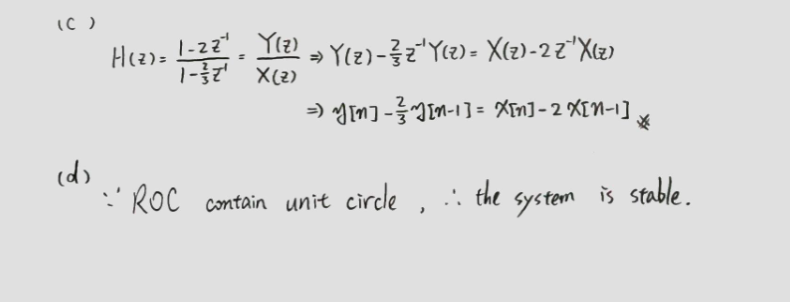 (c)
H(z) = \frac{1-2z^{-1}}{1-\frac{2}{3}z^{-1}} = \frac{Y(z)}{X(z)} ⇒ Y(z) - \frac{2}{3}z^{-1}Y(z) = X(z) - 2z^{-1}X(z)
⇒ y[n] - \frac{2}{3}y[n-1] = x[n] - 2x[n-1] ※
(d)
∵ ROC contain unit circle , ∴ the system is stable.